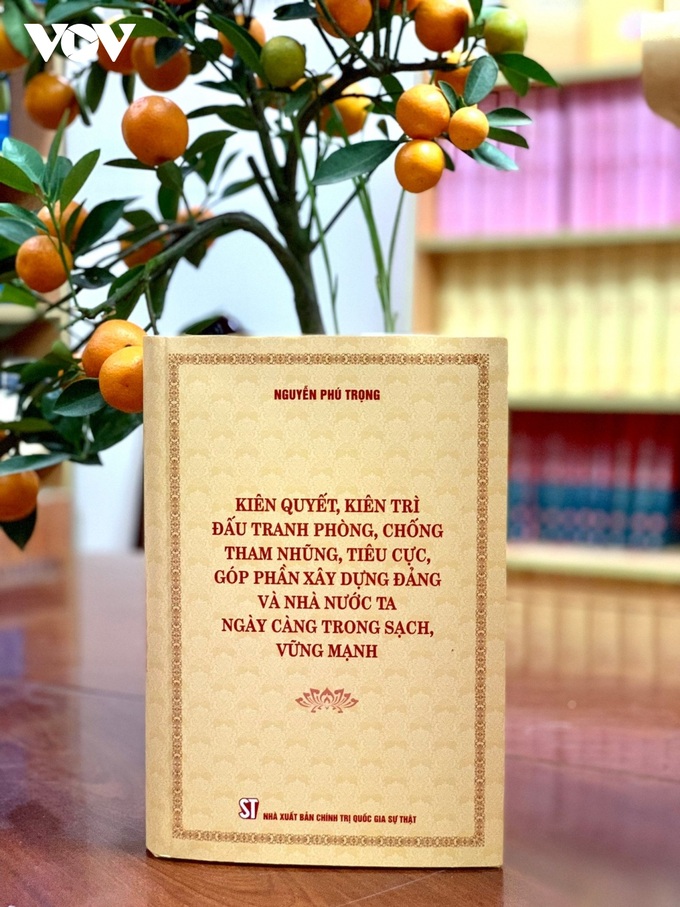 VOV
NGUYỄN PHÚ TRỌNG
KIÊN QUYẾT, KIÊN TRÌ
ĐẤU TRANH PHÒNG, CHỐNG
THAM NHŨNG, TIÊU CỰC,
GÓP PHẦN XÂY DỰNG ĐẢNG
VÀ NHÀ NƯỚC TA
NGÀY CÀNG TRONG SẠCH,
VỮNG MẠNH
ST NHÀ XUẤT BẢN CHÍNH TRỊ QUỐC GIA SỰ THẬT